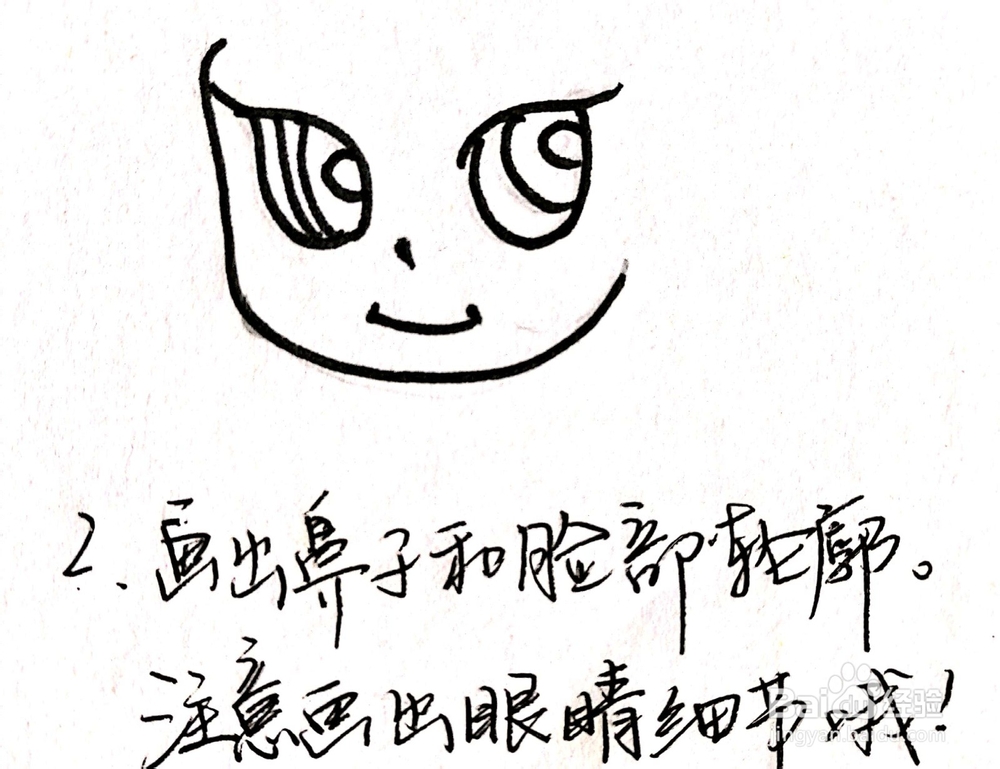 2、画出鼻子和脸部轮廓。
注意画出眼睛细节哦！
Baidu经验
jingyan.baidu.com